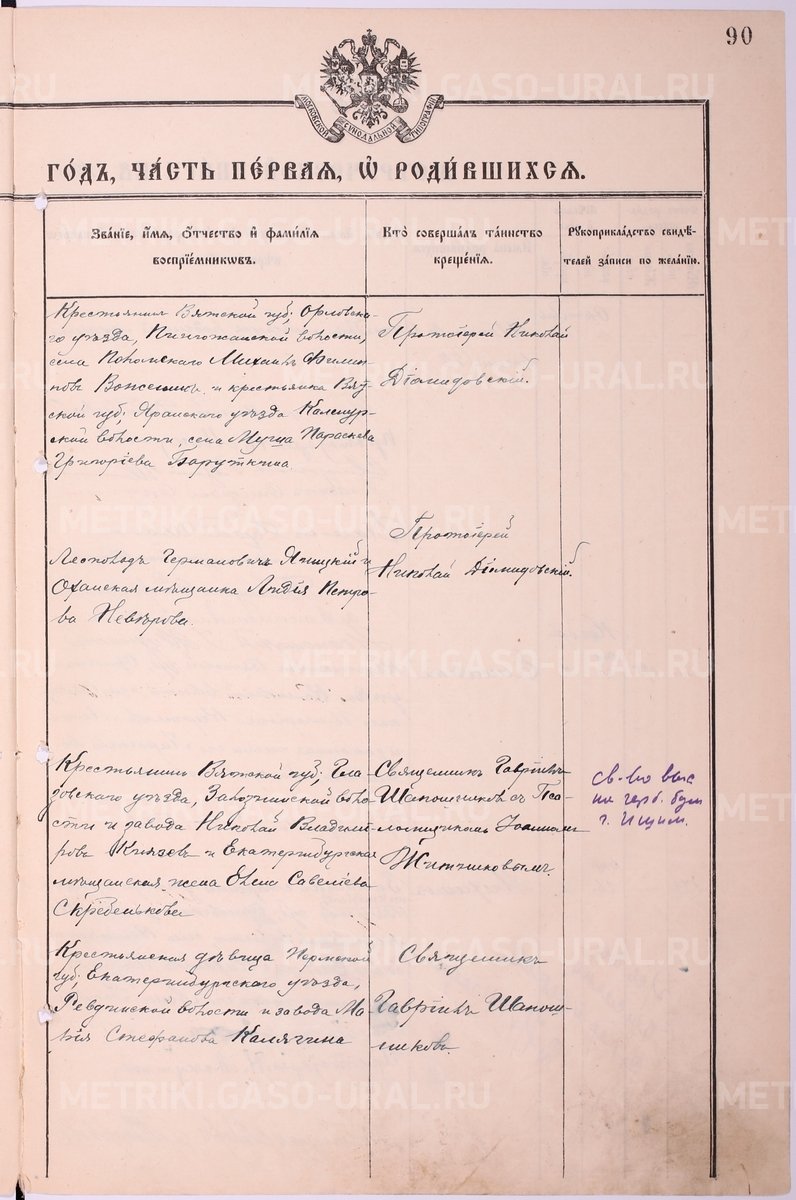 90
МОСКОВСКОЙ СѴНОДАЛЬНОЙ ТИПОГРАФІИ
ГО́ДЪ, ЧА́СТЬ ПЕ́РВАЯ, Ѡ҆ РОДИ́ВШИХСЯ.
Зва́нїе, и҆́мя, ѻ҆́тчество и҆ фами́лїя
воспрїе́мникωвъ.
Кто̀ соверша́лъ та́инство
креще́нїя.
Рꙋкоприкла́дство свидѣ́-
телей за́писи по жела́нїю.
Крестьянинъ Вятской губ., Орловска-
го уѣзда, волости,
села Михаилъ Филип-
повъ и крестьянка Вят-
ской губ., Яранскаго уѣзда
ской волости, села Параскева
Григоріева Баруткина.
Протоіерей Николай
Діомидовскій.
Леопольдъ Германовичъ Яницкій и
Оханская мѣщанка Лидія Петро-
ва Невѣрова.
Протоіерей
Николай Діомидовскій.
Крестьянинъ Вятской губ., Гла-
зовскаго уѣзда, Залазнинской воло-
сти и завода Николай Владимі-
ровъ Князевъ и Екатеринбургская
мѣщанская жена Елена Савеліева
Скребенькова
Священникъ Гавріилъ
Шапошниковъ съ Пса-
ломщикомъ Іоанномъ
Житниковымъ.
св-во выс
на герб. бум
г. Ишим.
Крестьянская дѣвица Пермской
губ., Екатеринбургскаго уѣзда,
Ревдинской волости и завода Ма-
рія Стефанова Калягина
Священникъ
Гавріилъ Шапош-
никовъ.
METRIKI.GASO-URAL.RU